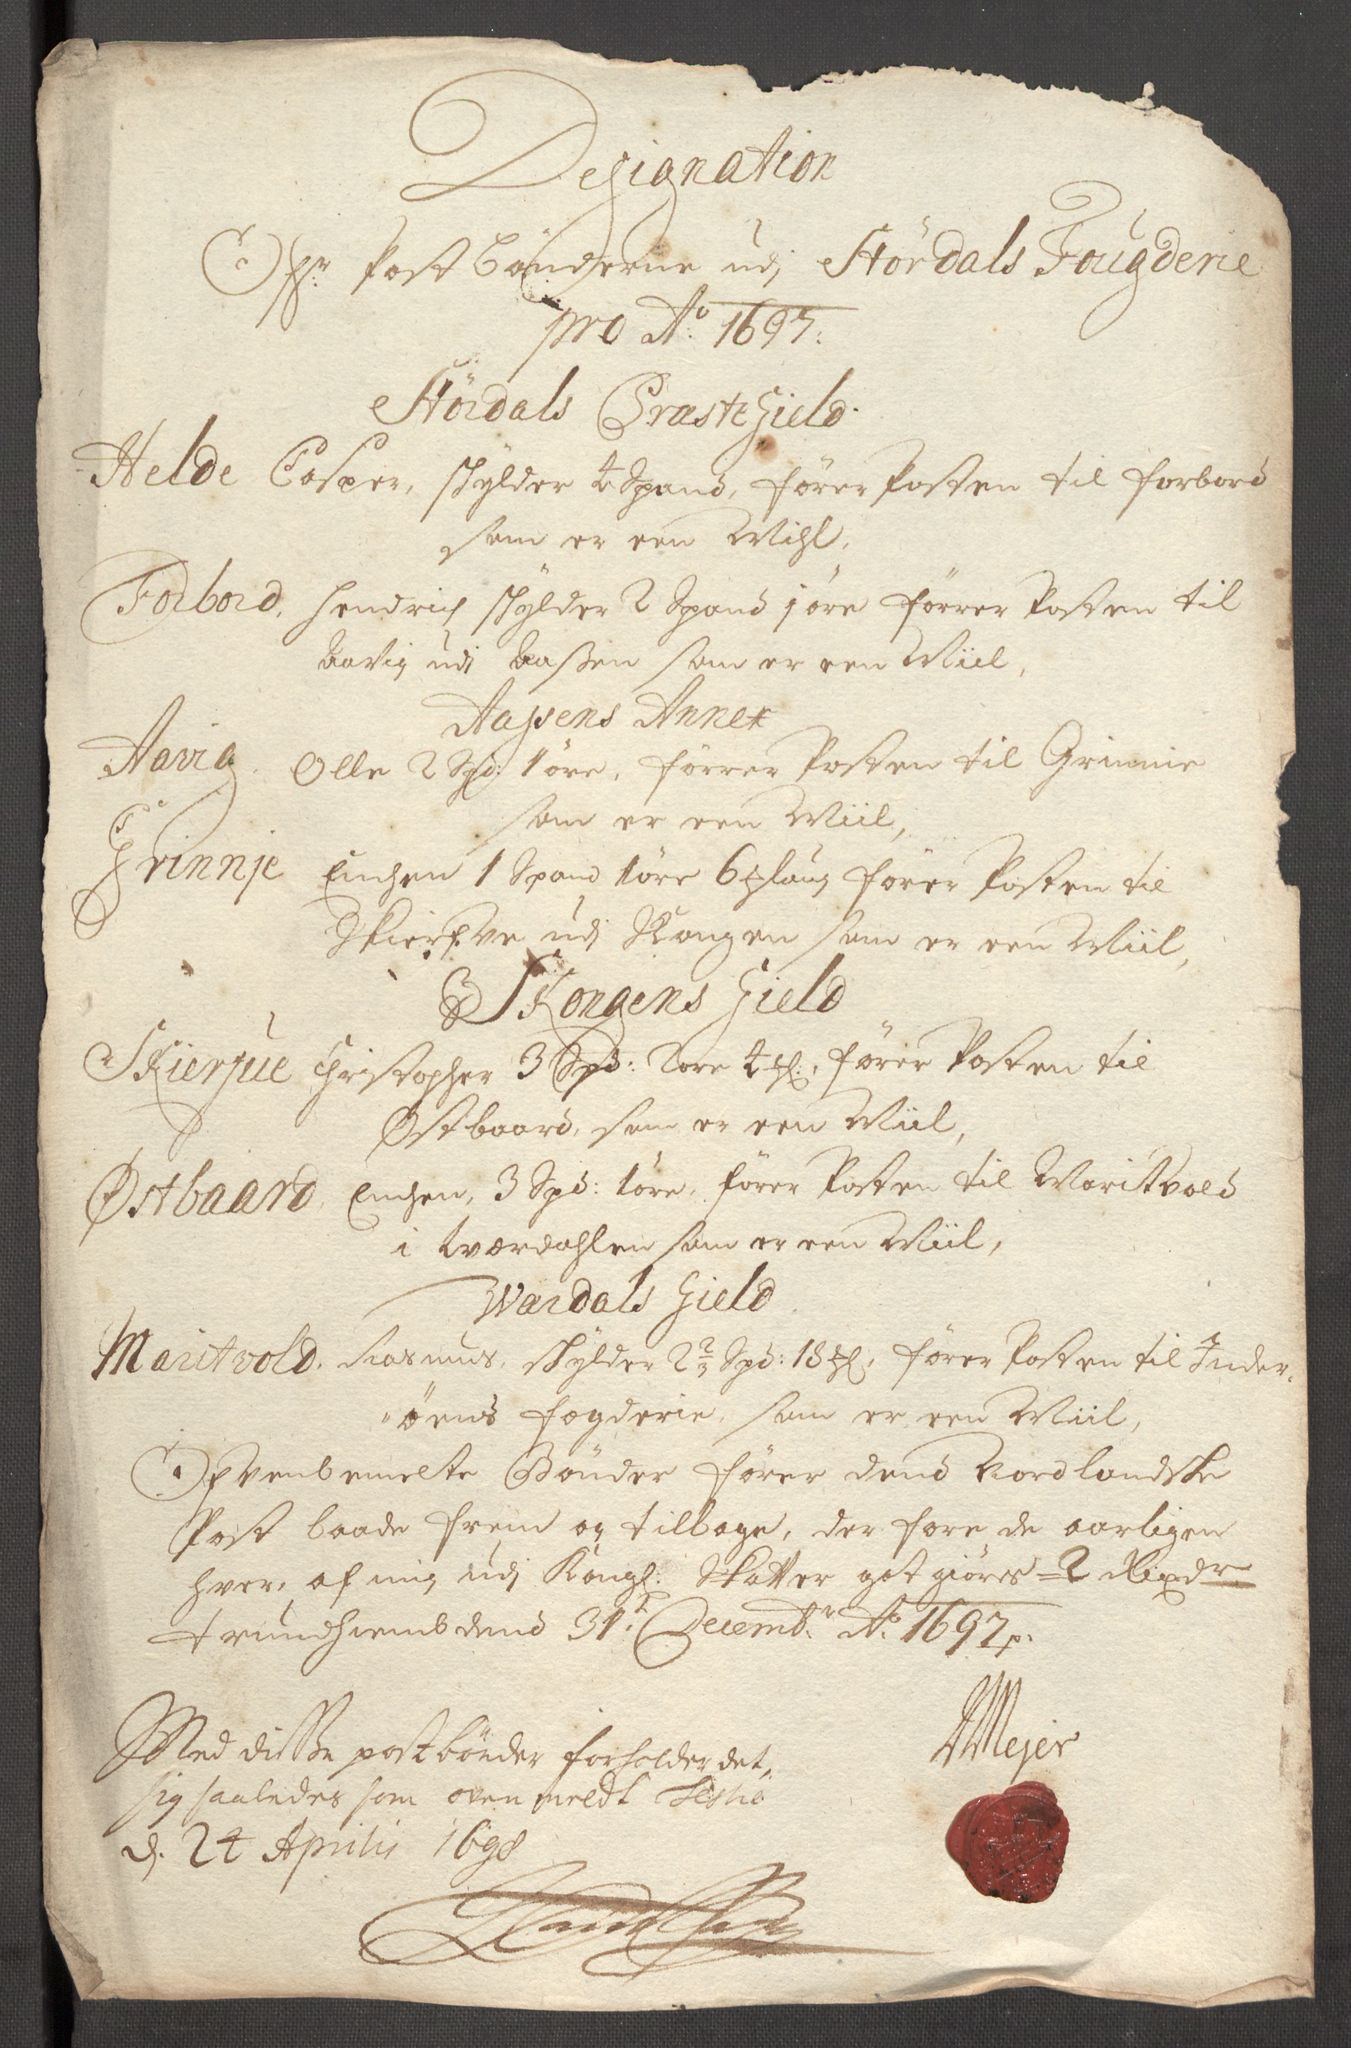 Designation
Ofr. Postbønderne udj Stördals Fougderie
pro Ao 1697:
Stördals Præste Gield.
Helde Casper, skylder 4 Spand, fører Posten til Forbord
som er een Mihl,
Forbord. Hendrich skylder 2 Spand 1 øre førrer Posten til
Aavig udj Aassen som er een Miil,
Aassens Annex
Aavig Olle 2 Spd: 1 øre, førrer Posten til Grinnie
som er een Miil,
Grinnje Enchen 1 Spand 1 øre 6 Marklaug fører Posten til
Skierfve udj Skongen som er een Miil,
Skongens Gield
Skierfue Christopher 3 Spd: 2 øre 4 ml:, fører Posten til
Østbaard, som er een Miil,
Østbaard, Enchen, 3 Spd: 1 øre, fører Posten til Maritvold
i Værdahlen som er een Miil,
Wardals Gield
Maritvold. Rasmus, skylder 2 2/3 Spd: 18 ml, fører Posten til Inder-
øens fogderie, som er een Miil,
Ofvenbemelte Bønder fører dend Nordlandske
Post baade frem og tilbage, der fore de aarligen
hver, af mig udj Kongl: Skatter got giøres 2 Rixdr
Trundhiemb dend 31t Decembr Ao 1697
Mejer
Med disse postbønder forholder det,
sig saaledes som oven meldt
d. 24 Aprilis 1698